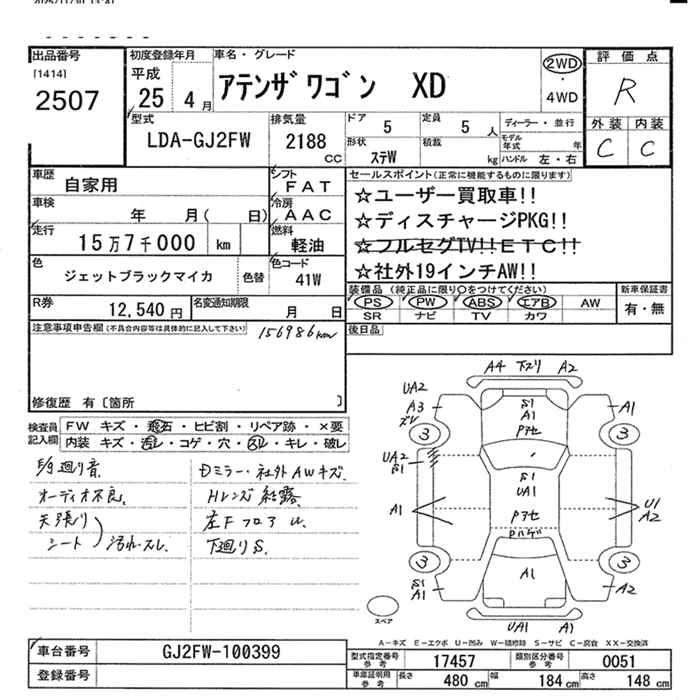 出品番号
[1414]
2507
初度登録年月
平成
25 4月
車名・グレード
アテンザワゴン XD
2WD
・
4WD
評価点
R
外装 内装
C C
型式
LDA-GJ2FW
排気量
2188
CC
ドア
5
定員
5 人
形状
ステW
積載
kg
ディーラー・並行
モデル
年式 年
ハンドル 左・右
車歴
自家用
シフト
FAT
車検
年 月( 日)
冷房
AAC
走行
15万7千000 km
燃料
軽油
色
ジェットブラックマイカ
色替
色コード
41W
R券
12,540円
名変通知期限
月 日
セールスポイント(正常に機能するものに限ります)
☆ユーザー買取車!!
☆ディスチャージPKG!!
☆フルセグTV!!ETC!!
☆社外19インチAW!!
装備品 (純正品に限り○をつけてください)
PS PW ABS エアB AW
SR ナビ TV カワ
新車保証書
有・無
後日品
注意事項申告欄(不具合内容等は具体的に記入して下さい)
156986km
修復歴 有〔箇所 〕
検査員
記入欄
FW キズ・飛石・ヒビ割・リペア跡・×要
内装 キズ・汚レ・コゲ・穴・スレ・キレ・破レ
廻り音
オーディオ不良
天張り
シート
汚れ・スレ
Dミラー・社外AWキズ
Hレンズ結露
左Fフロア U
下廻りS
A4 下ズリ A2
UA2
A3
ズレ
3
S1
A1
Pアセ
A1
3
UA2
S1
A1
S1
UA1
Pアセ
Pハゲ
U1
A2
3
S1
A1
A1
3
A2
UA1 A1
スペア
A-キズ E-エクボ U-凹み W-補修跡 S-サビ C-腐食 XX-交換済
車台番号
GJ2FW-100399
登録番号
型式指定番号
参考
17457
類別区分番号
参考
0051
車庫証明用
参考
長さ
480 cm
幅
184 cm
高さ
148 cm